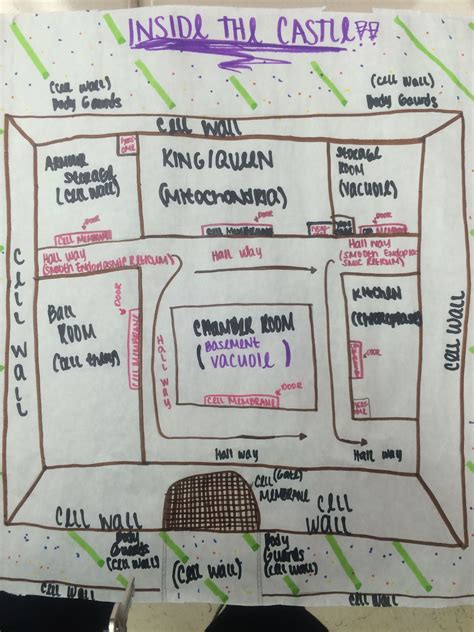 INSIDE THE CASTLE!!
(Cell Wall)
Body Gaurds
(Cell Wall)
Body Gaurds
Cell Wall
ARMOUR
STORAGE
(Cell Wall)
KING/QUEEN
(Mitochondria)
STORAGE
ROOM
(VACUOLE)
DOOR
CELL MEMBRANE
DOOR
CELL MEMBRANE
DOOR
Hall Way
(Smooth Endoplasmic Reticulum)
Hall Way
Hall Way
(Smooth Endoplas-
mic Reticulum)
Cell Wall
Ball
ROOM
DOOR
CELL MEMBRANE
Hall Way
CHAMBER ROOM
(BASEMENT
VACUOLE)
DOOR
CELL MEMBRANE
KITCHEN
(Chloroplast)
DOOR
Cell Wall
Hall Way
Hall Way
(Gate)
Cell
MEMBRANE
Cell Wall
Cell
Wall
Body
Gaurds
(Cell Wall)
(Cell Wall)
Body
Gaurds
(Cell Wall)
Cell Wall
Cell Wall